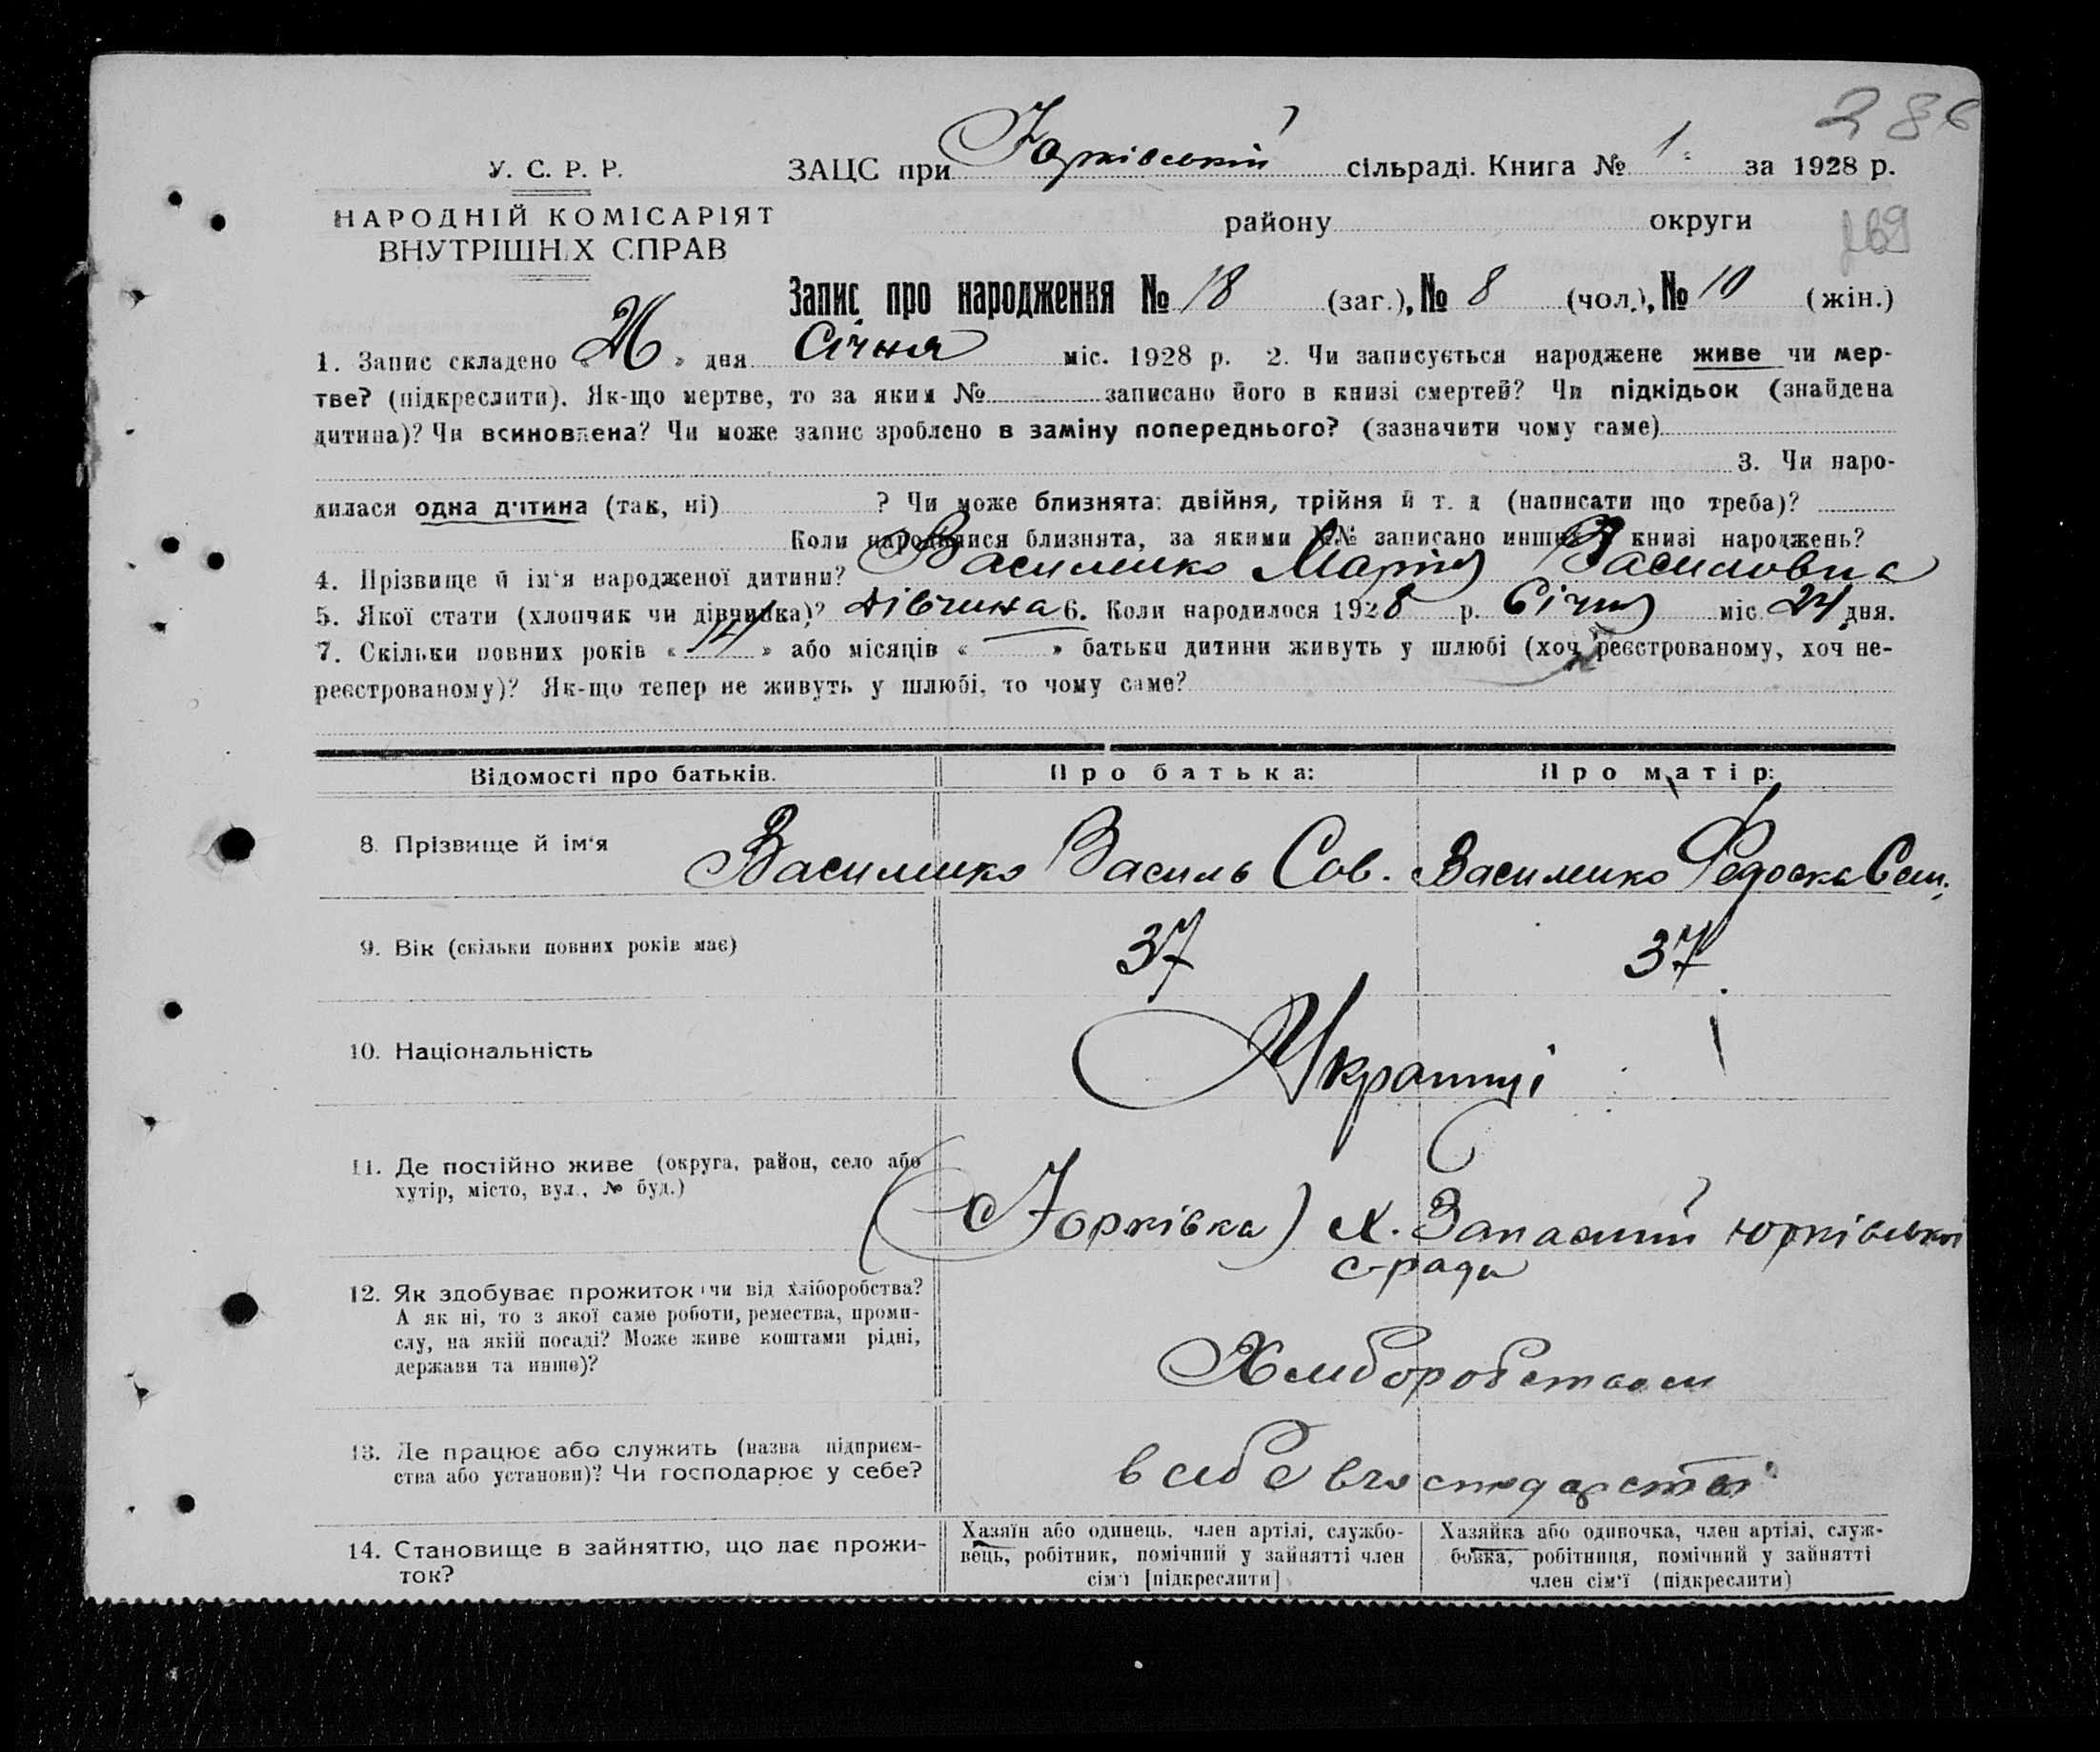 286
У. С. Р. Р.
НАРОДНІЙ КОМІСАРІЯТ
ВНУТРІШНІХ СПРАВ
269
ЗАЦС при Юрківській сільраді. Книга № 1. за 1928 р.
району округи
Запис про народження № 18 (заг.), № 8 (чол.), № 10 (жін.)
1. Запис складено « 26 » дня Січня міс. 1928 р. 2. Чи записується народжене живе чи мер-
тве? (підкреслити). Як-що мертве, то за яким № записано його в книзі смертей? Чи підкідьок (знайдена
дитина)? Чи всиновлена? Чи може запис зроблено в заміну попереднього? (зазначити чому саме)
3. Чи наро-
дилася одна дитина (так, ні) ? Чи може близнята: двійня, трійня й т. д (написати що треба)?
Коли народилися близнята, за якими №№ записано инших у книзі народжень?
4. Прізвище й ім'я народженої дитини? Василенко Марія Василовна
5. Якої стати (хлопчик чи дівчинка)? дівчина 6. Коли народилося 1928 р. Січня міс. 24 дня.
7. Скільки повних років « 14 » або місяців « — » батьки дитини живуть у шлюбі (хоч реєстрованому, хоч не-
реєстрованому)? Як-що тепер не живуть у шлюбі, то чому саме?
Відомості про батьків. Про батька: Про матір:
8. Прізвище й ім'я Василенко Василь Сав. Василенко Федоска Сем.
9. Вік (скільки повних років має) 37 37
10. Національність Українці
11. Де постійно живе (округа, район, село або
хутір, місто, вул., № буд.)
(с Юрківка) х. Запасний Юрківської
с-ради
12. Як здобуває прожиток: чи від хліборобства?
А як ні, то з якої саме роботи, ремества, проми-
слу, на якій посаді? Може живе коштами рідні,
держави та инше)?
Хліборобством
13. Де працює або служить (назва підприєм-
ства або установи)? Чи господарює у себе?
в себе в господарстві
14. Становище в зайняттю, що дає прожи-
ток?
Хазяїн або одинець, член артілі, службо-
вець, робітник, помічний у зайнятті член
сім'ї [підкреслити]
Хазяйка або одиночка, член артілі, служ-
бовка, робітниця, помічний у зайнятті
член сім'ї (підкреслити)